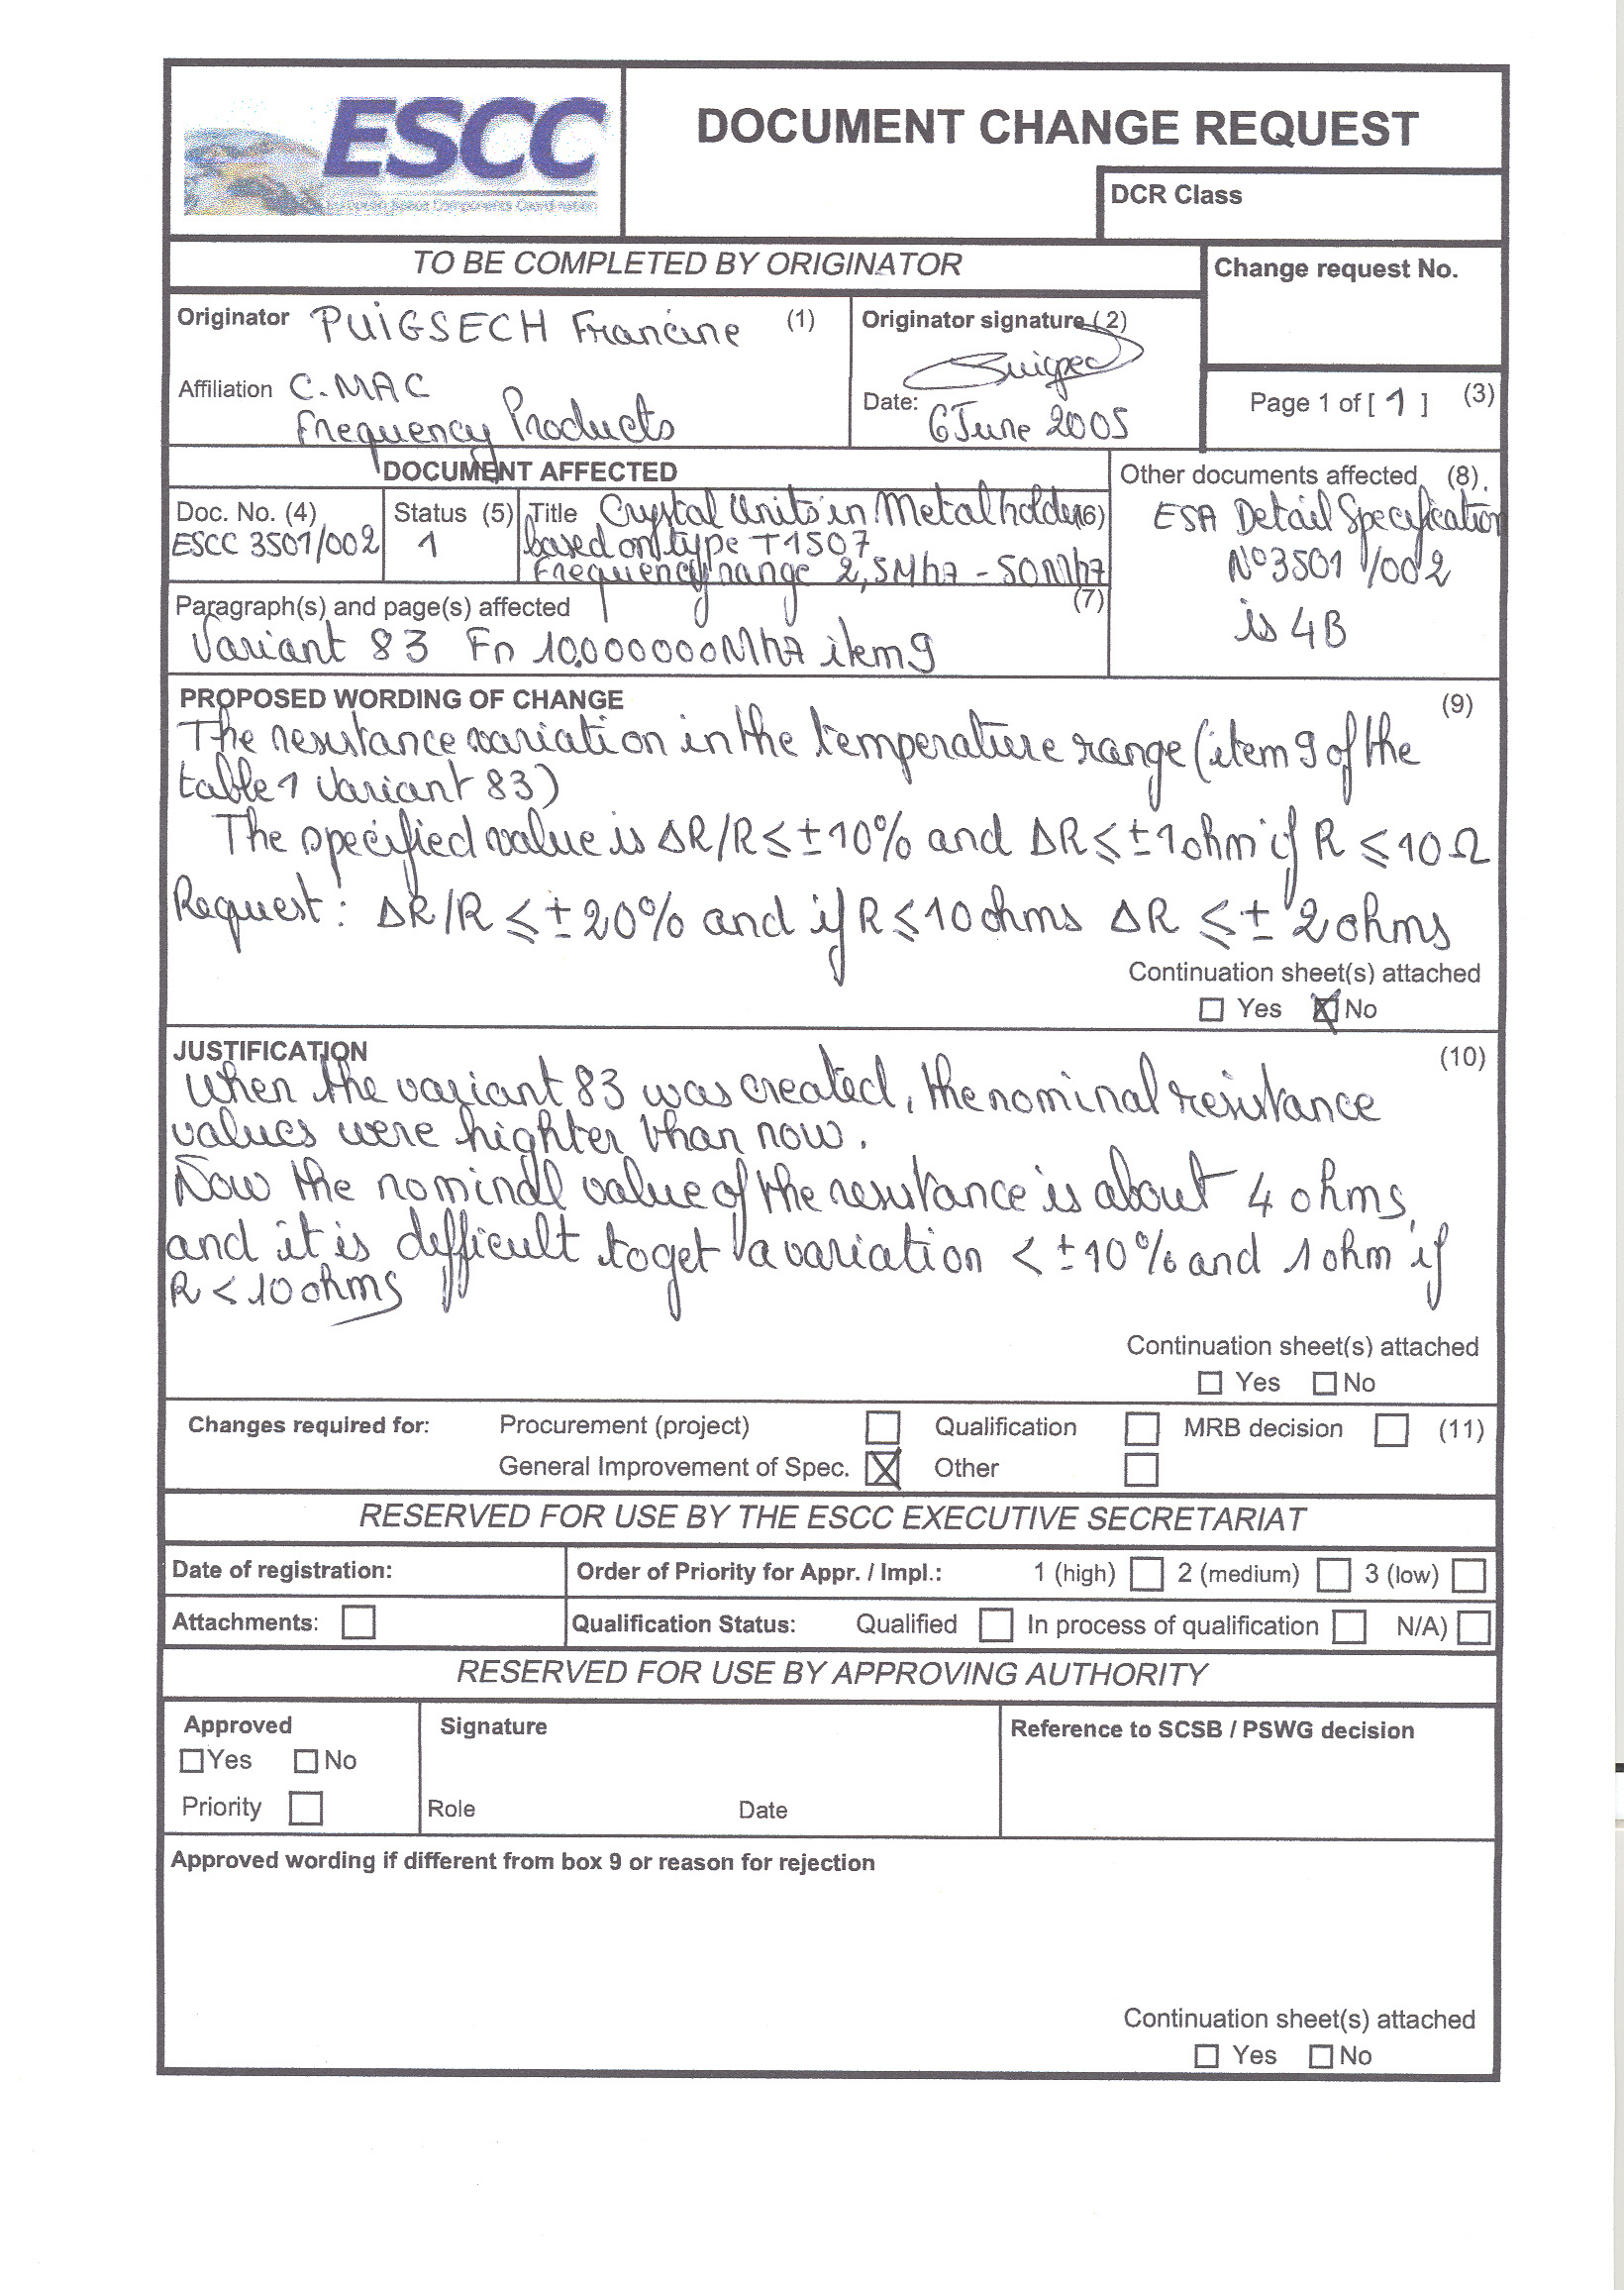 ESCC
European Space Components Coordination
DOCUMENT CHANGE REQUEST
DCR Class
TO BE COMPLETED BY ORIGINATOR
Change request No.
Originator PUIGSECH Francine (1)
Affiliation C.MAC
Frequency Products
Originator signature (2)
Date: 6 June 2005
Page 1 of [ 1 ] (3)
DOCUMENT AFFECTED
Doc. No. (4)
ESCC 3501/002
Status (5)
1
Title Crystal Units in Metal holder (6)
based on type T1507
Frequency range 2,5Mhz - 50Mhz
Other documents affected (8)
ESA Detail Specification
N°3501/002
is 4B
Paragraph(s) and page(s) affected (7)
Variant 83 Fn 10.000000Mhz item 9
PROPOSED WORDING OF CHANGE (9)
The resistance variation in the temperature range (item 9 of the
table 1 variant 83)
The specified value is ΔR/R ≤ ±10% and ΔR ≤ ±1ohm if R ≤ 10Ω
Request: ΔR/R ≤ ±20% and if R ≤ 10 ohms ΔR ≤ ± 2 ohms
Continuation sheet(s) attached
Yes No
JUSTIFICATION (10)
When the variant 83 was created, the nominal resistance
values were highter than now.
Now the nominal value of the resistance is about 4 ohms,
and it is difficult to get a variation < ±10% and 1 ohm if
R < 10 ohms
Continuation sheet(s) attached
Yes No
Changes required for: Procurement (project) Qualification MRB decision (11)
General Improvement of Spec. Other
RESERVED FOR USE BY THE ESCC EXECUTIVE SECRETARIAT
Date of registration: Order of Priority for Appr. / Impl.: 1 (high) 2 (medium) 3 (low)
Attachments: Qualification Status: Qualified In process of qualification N/A)
RESERVED FOR USE BY APPROVING AUTHORITY
Approved
Yes No
Priority
Signature
Role Date
Reference to SCSB / PSWG decision
Approved wording if different from box 9 or reason for rejection
Continuation sheet(s) attached
Yes No